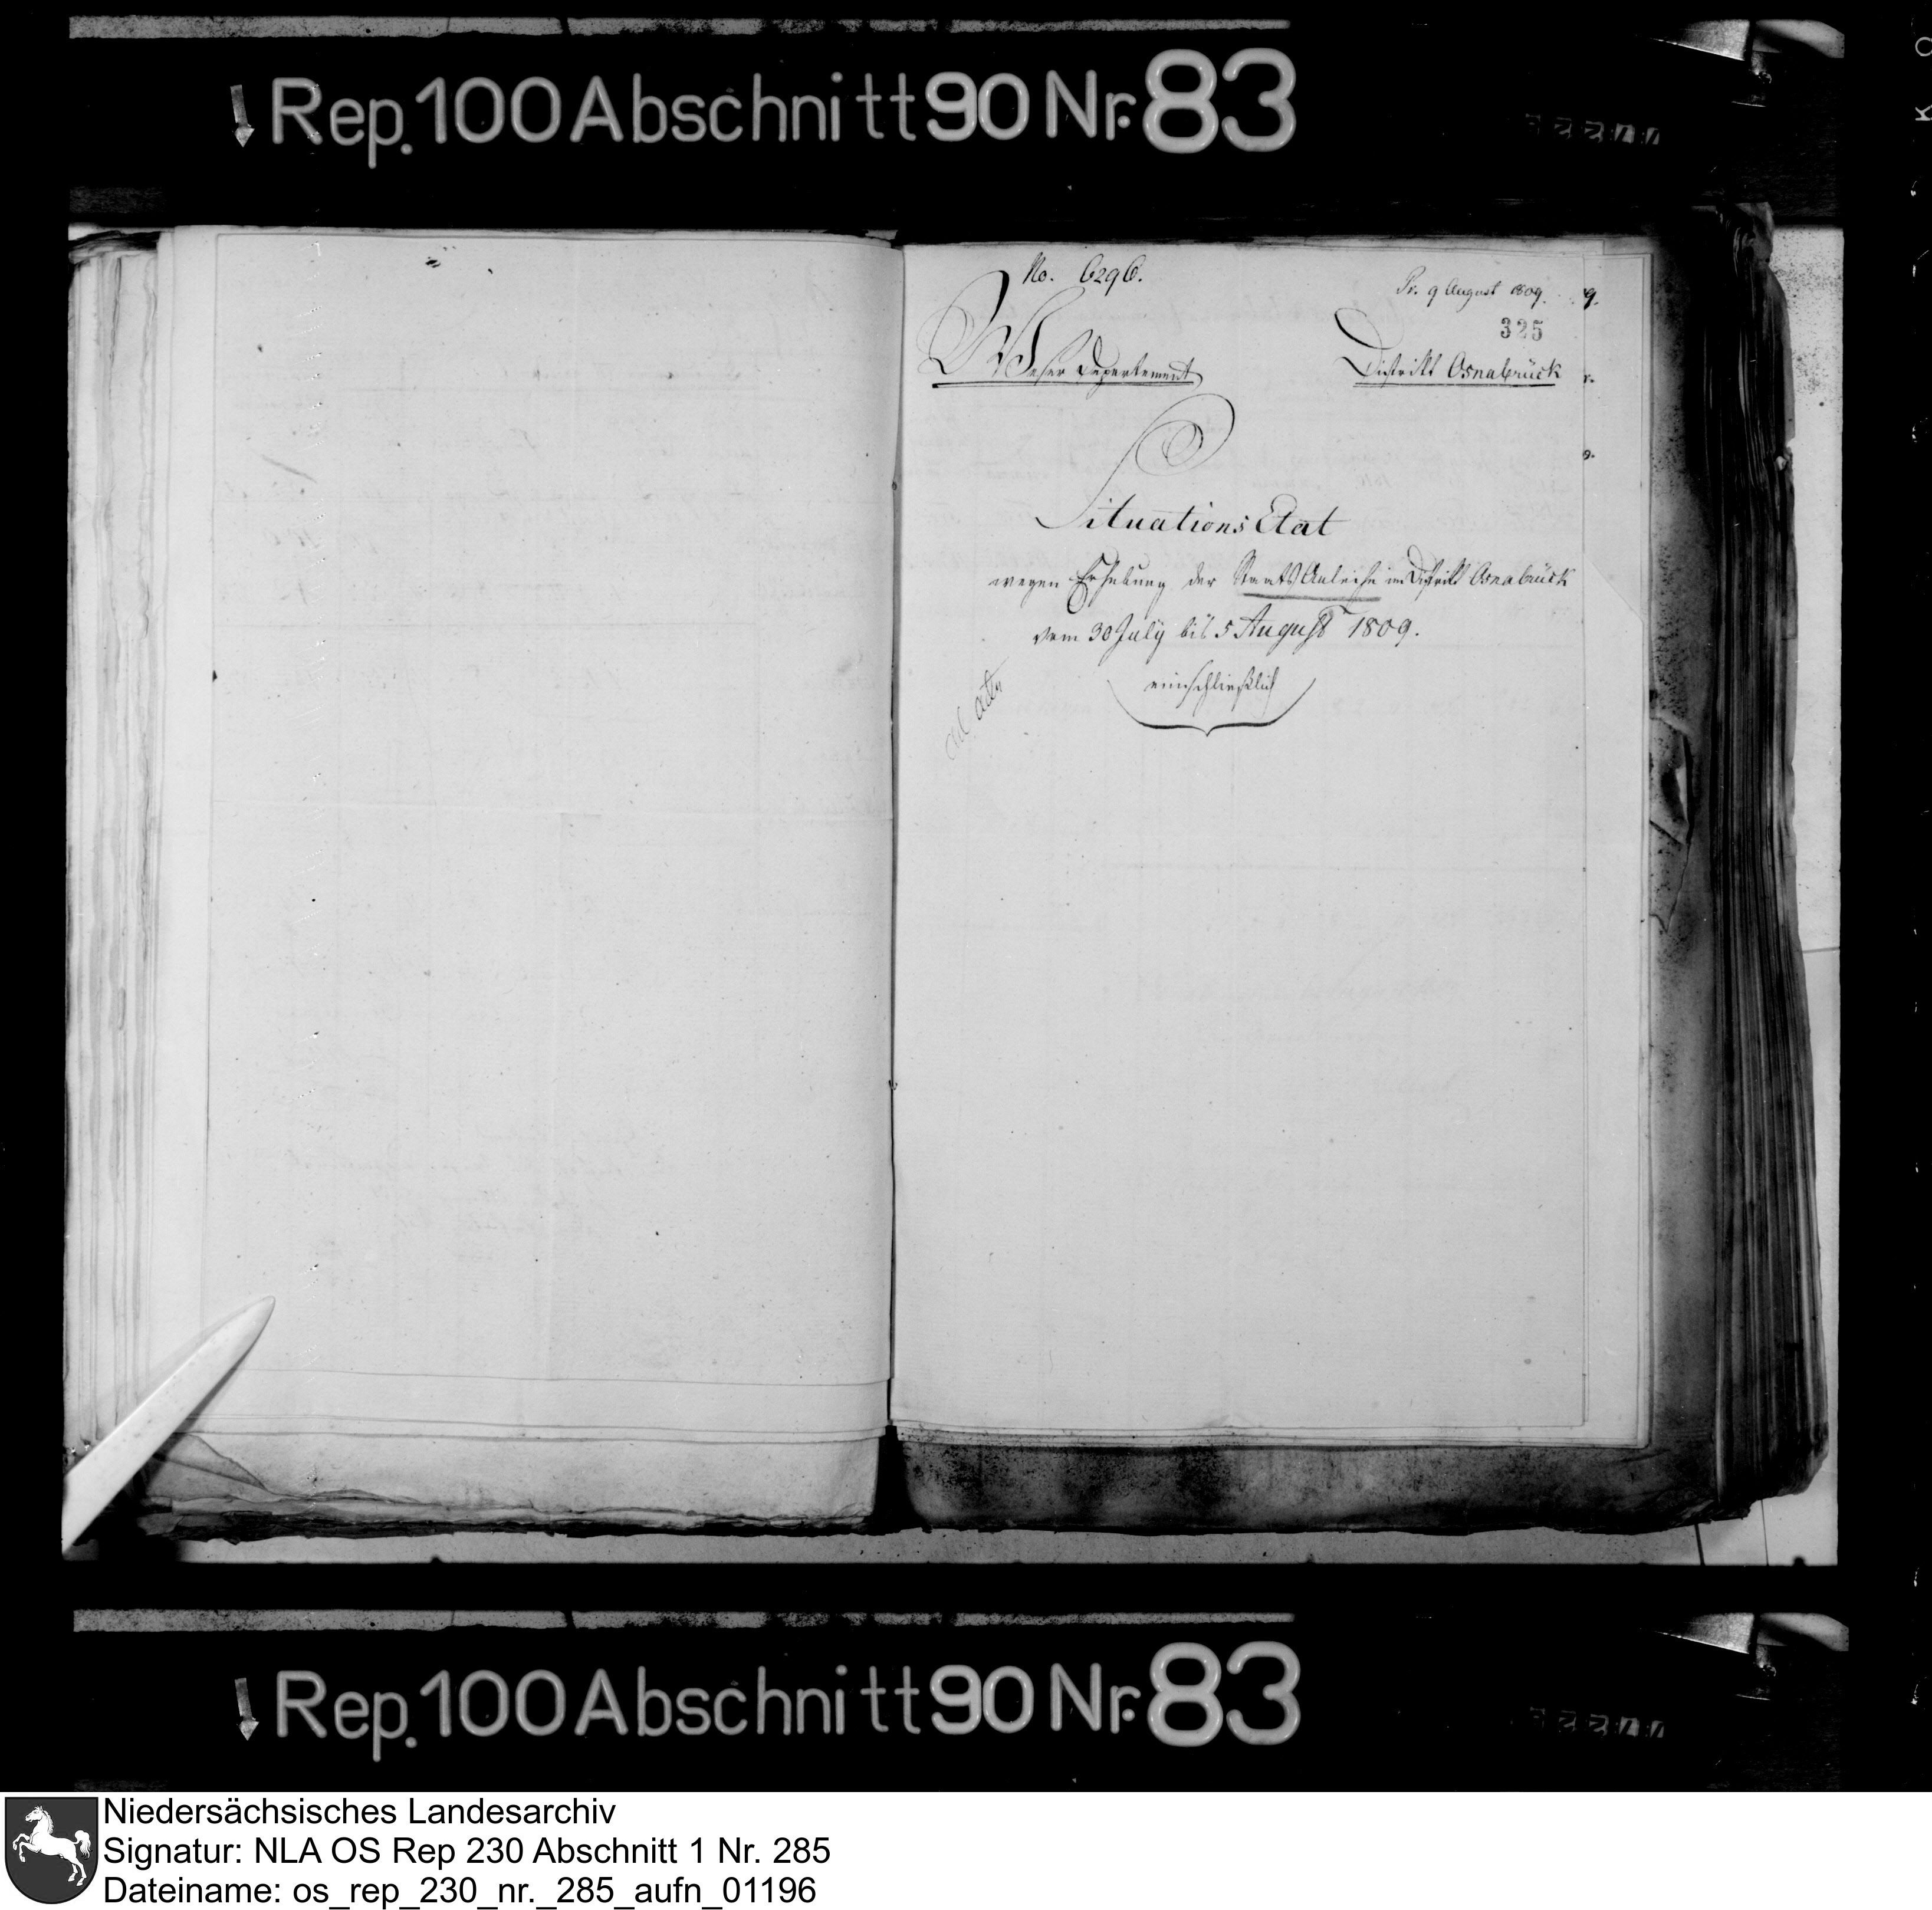 Rep. 100 Abschnitt 90 Nr. 83
No. 6296.
Pr. 9 August 1809.
325
Weser Departement
Distrikt Osnabrück
Situations Etat
wegen Erhebung der Staats Anleihe im Distrikt Osnabrück
vom 30 July bis 5 August 1809.
einschließlich
ad acta
Rep. 100 Abschnitt 90 Nr. 83
Niedersächsisches Landesarchiv
Signatur: NLA OS Rep 230 Abschnitt 1 Nr. 285
Dateiname: os_rep_230_nr._285_aufn_01196